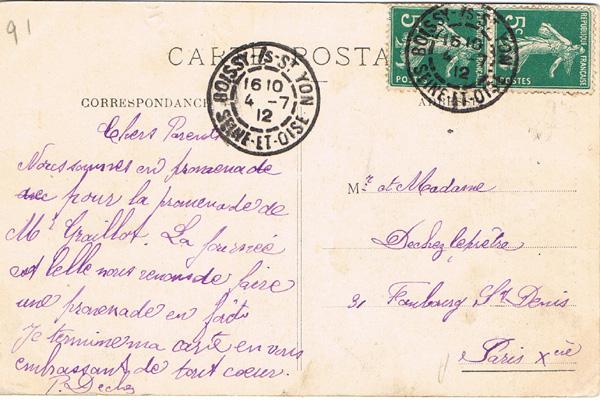 91
CARTE POSTALE
BOISSY-/S-ST YON
16 10
4 -7
12
SEINE-ET-OISE
5c
5c
REPUBLIQUE FRANÇAISE
POSTES
BOISSY-/S-ST YON
16 10
4
12
SEINE-ET-OISE
CORRESPONDANCE
Chers Parents
Nous sommes en promenade
pour la promenade de
Mr Graillot. La journée
est belle nous venons de faire
une promenade en forêt
Je termine ma carte en vous
embrassant de tout coeur.
P. Dechez
Mr et Madame
Dechezleprêtre
91 Faubourg St Denis
Paris Xème